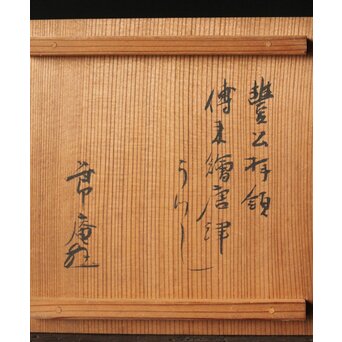 豐公拝領
傳来繪唐津
うつし
庵